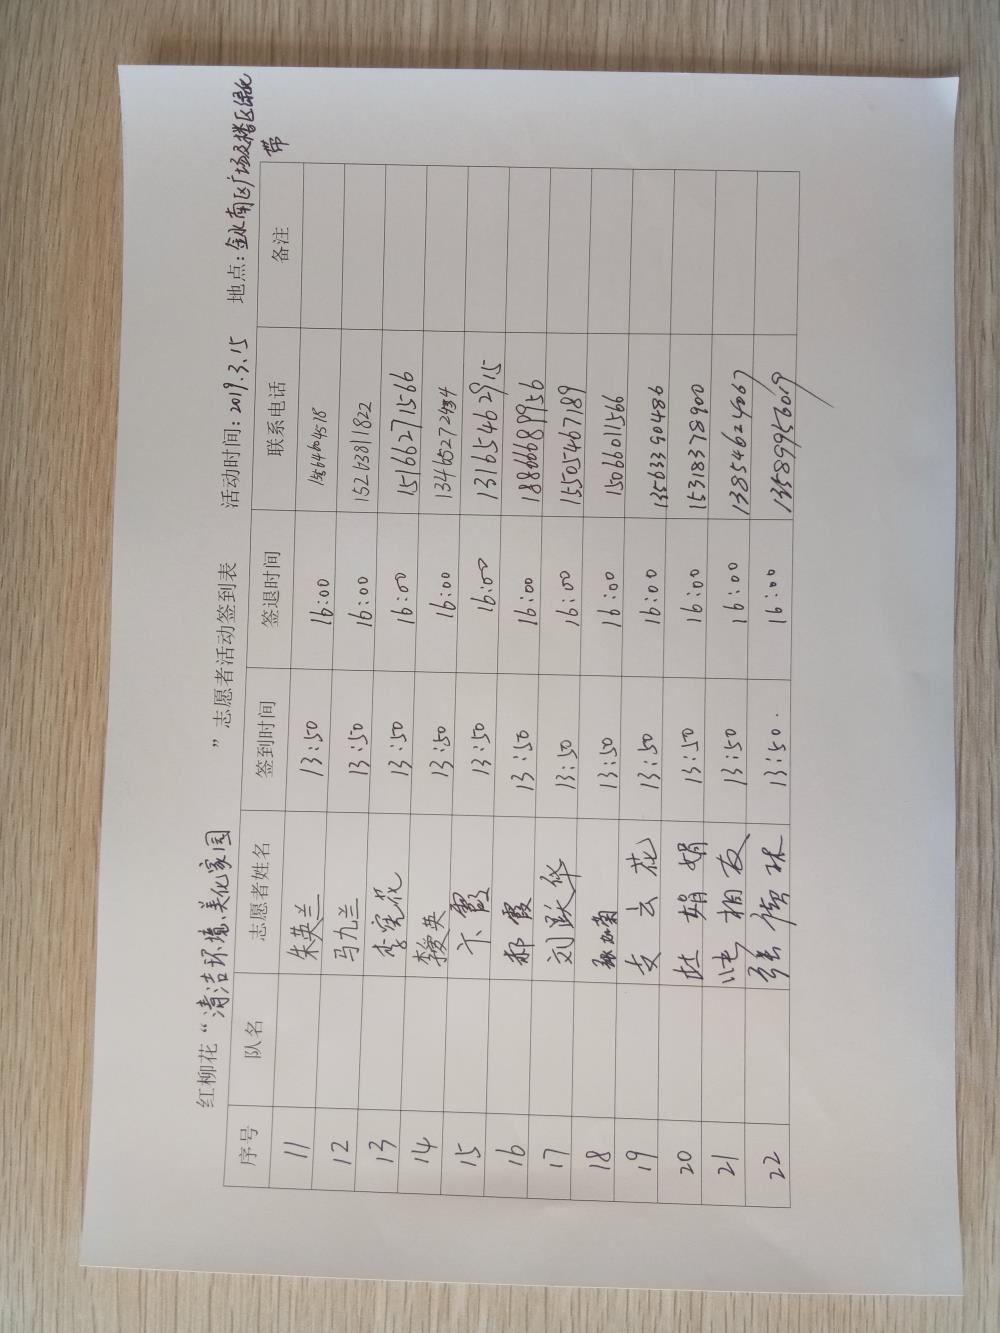 红柳花“清洁环境、美化家园”志愿者活动签到表 活动时间：2019.3.15 地点：金水南区广场及楼区绿化带
序号 队名 志愿者姓名 签到时间 签退时间 联系电话 备注
11 朱英兰 13:50 16:00
12 马九兰 13:50 16:00 15263811822
13 李宪花 13:50 16:00 15166271566
14 李爱英 13:50 16:00
15 卞霞 13:50 16:00 13165462915
16 郝霞 13:50 16:00
17 刘跃华 13:50 16:00 15505467189
18 13:50 16:00 15066011566
19 支云花 13:50 16:00 13563390486
20 杜娟娟 13:50 16:00 15318378900
21 相友 13:50 16:00 13854624067
22 13:50. 16:00 13589956019